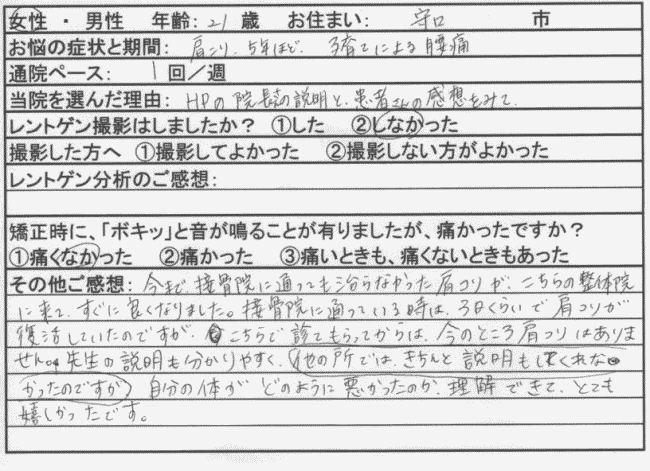 女性 ・ 男性 年齢: 21 歳 お住まい: 守口 市
お悩の症状と期間: 肩こり、5年ほど、子育てによる腰痛
通院ペース: 1 回／週
当院を選んだ理由: HPの院長の説明と、患者さんの感想をみて、
レントゲン撮影はしましたか？ ①した ②しなかった
撮影した方へ ①撮影してよかった ②撮影しない方がよかった
レントゲン分析のご感想:
矯正時に、「ボキッ」と音が鳴ることが有りましたが、痛かったですか？
①痛くなかった ②痛かった ③痛いときも、痛くないときもあった
その他ご感想: 今まで、接骨院に通っても治らなかった肩コリが、こちらの整体院
に来て、すぐに良くなりました。接骨院に通っている時は、3日くらいで肩コリが
復活していたのですが、こちらで診てもらってからは、今のところ肩コリはありま
せん。先生の説明も分かりやすく、(他の所では、きちんと説明もしてくれな
かったのですが) 自分の体が どのように悪かったのか、理解できて、とても
嬉しかったです。